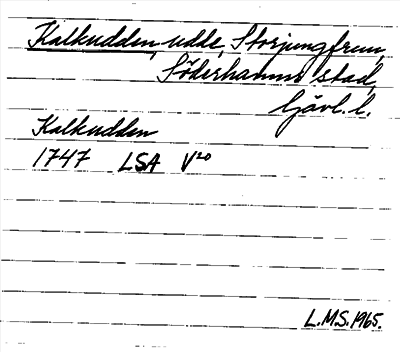 Kalkudden, udde, Storjungfrun,
Söderhamns stad,
Gävl. l.
Kalkudden
1747 LSA V20
L.M.S. 1965.